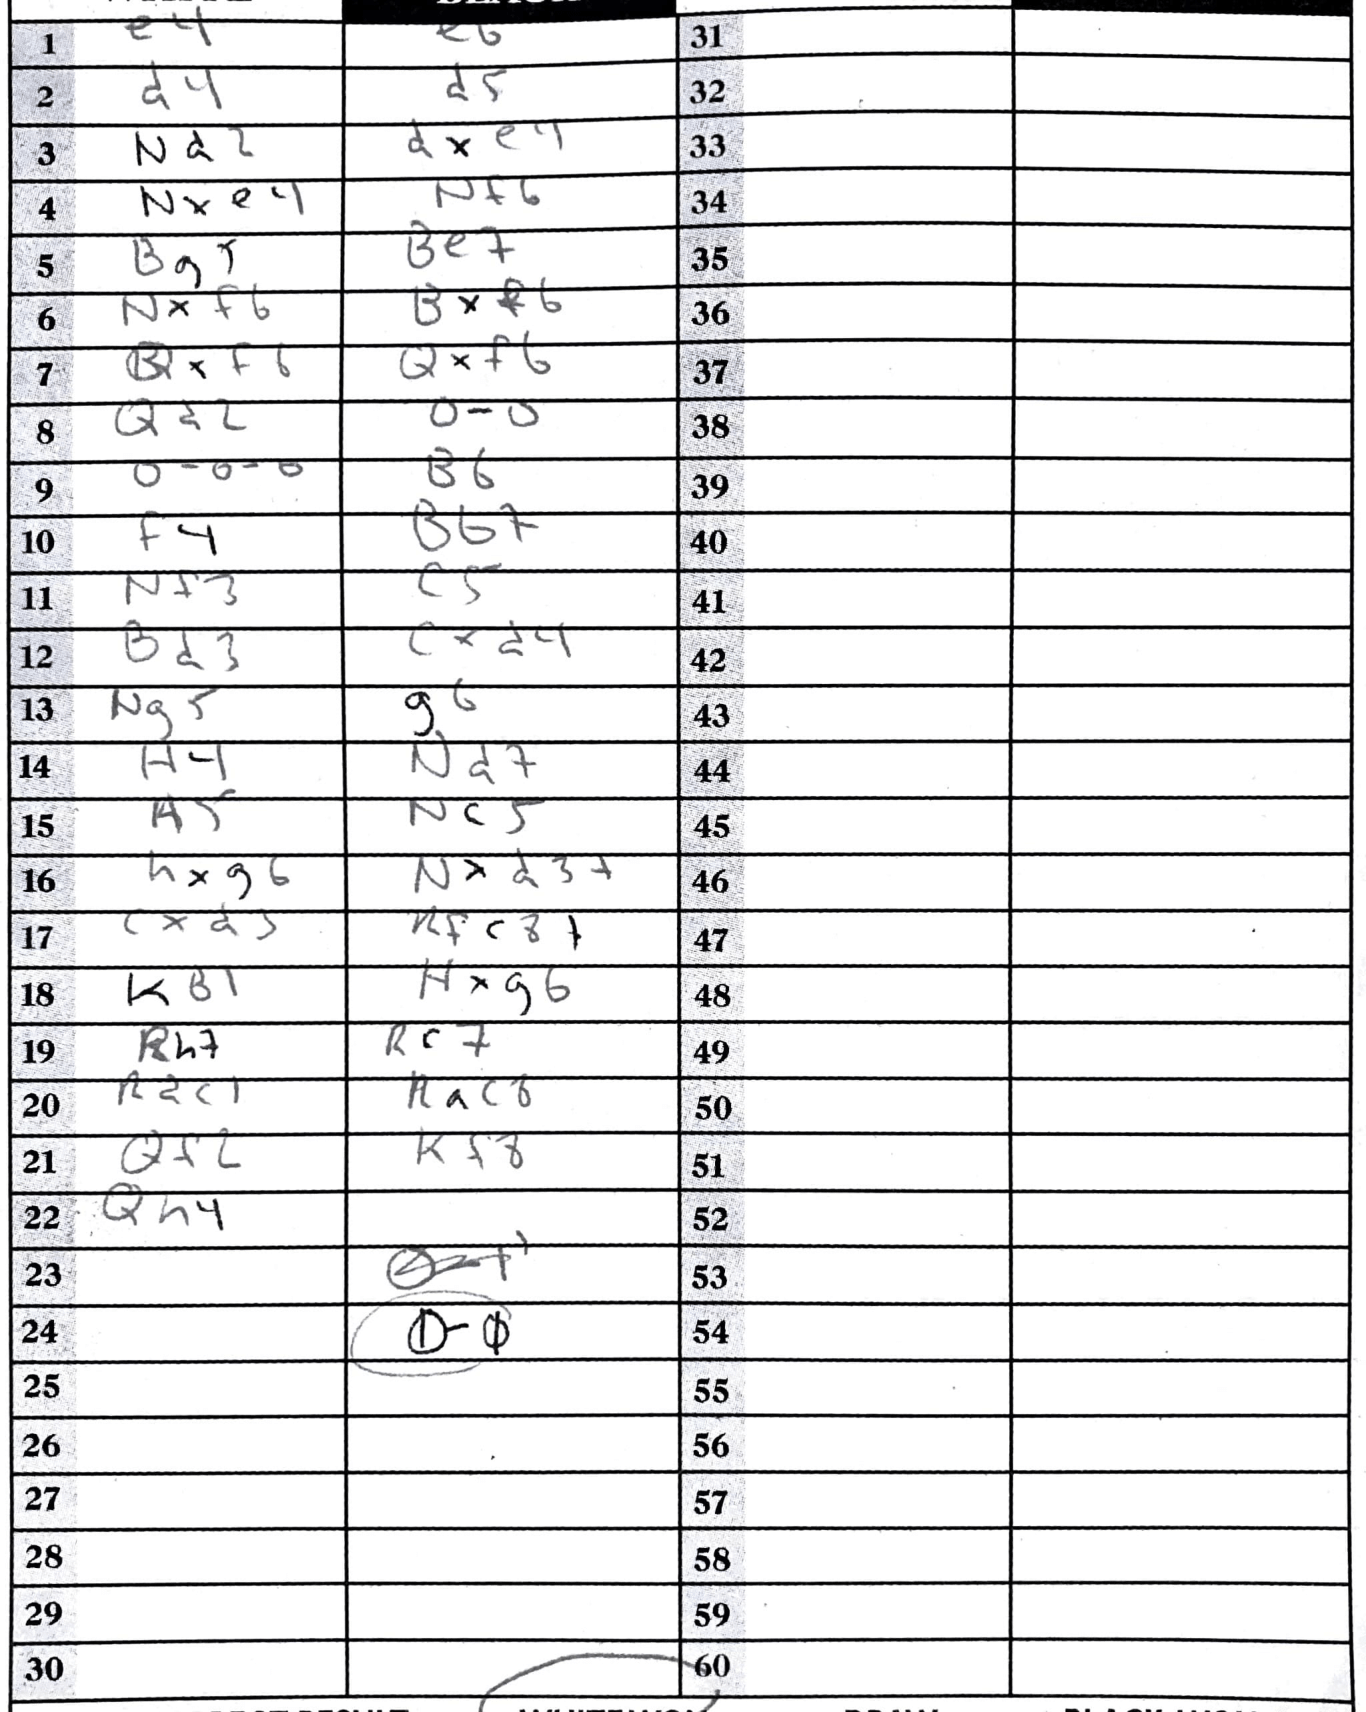 1 e4 e6 31
2 d4 d5 32
3 Nd2 dxe4 33
4 Nxe4 Nf6 34
5 Bg5 Be7 35
6 Nxf6 Bxf6 36
7 Bxf6 Qxf6 37
8 Qd2 0-0 38
9 0-0-0 B6 39
10 f4 Bb7 40
11 Nf3 C5 41
12 Bd3 Cxd4 42
13 Ng5 g6 43
14 H4 Nd7 44
15 H5 Nc5 45
16 hxg6 Nxd3+ 46
17 Cxd3 Rfc8+ 47
18 KB1 Hxg6 48
19 Rh7 Rc7 49
20 Rdc1 Rac8 50
21 Qf2 Kf8 51
22 Qh4 52
23 53
24 1-0 54
25 55
26 56
27 57
28 58
29 59
30 60